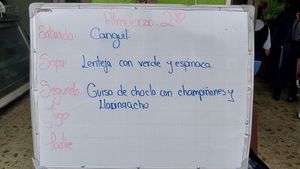 Almuerzo 2
Entrada: Canguil.
Sopa: Lenteja con verde y espinaca.
Segundo: Guiso de choclo con champiñones y
Llapingacho
Jugo:
Postre